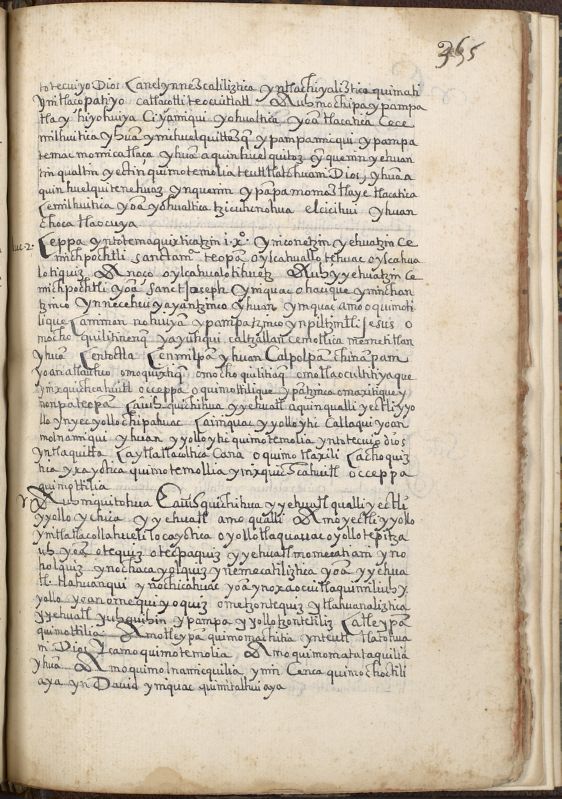 365
totecuiyo Dios Canel ynnezcaliliztica yntlachiyaliztica quimati
ynitlaçopatiyo caltacotli teocuitlatl Auh mochipa y pampa
tlay hiyohuiya Ciyamiqui yohualtica yoã tlacatica Cece
milhuitica yhuã y
temac momicatlaca yhuã aquin huelquitoz yquemin yehuan
tin qualtin yectin quimotemolia teutl tlatohuani Dios, yhuã a
quin huelquitenehuaz ynquenin ypãpa momoztlaye tlacatica
Cemilhuitica yoã yohualtica tzicuhcnohua elcicihui yhuan
choca tlaocuya
luc. 2. Ceppa yntotemaquixticatzin i.xº. yniconetzin yehuatzin ce
michpochtli sanctam teopã oylcahualloc tehuac oylcahua
lotiquiz Anoço oylcahualotihuetz Auh yyehuatzin ce
michpochtli yoã Sanct Joseph ynniquac ohacique yninchan
tzinco ynnecehuiyayantzinco yhuan yniquac amo quimoti
lique Cammon nohuiyã ypampatzinco ynpiltzintli Jesus o
mocho quilitinenq̃ yayuhqui caltzallan cemollica
yhuã Centoctla Cenmilpã yhuan Calpolpã chinãpam
yoan atlauhco omoquixtiq̃ omocho quilitiaq̃ omotlaoculhtiyaque
ynixquichcahuitl occeppa oquimottilique ypãtzinco omaxitique y
nonpa teopã Cauh quichihua yyehuatl aquin qualli yectli yyo
llo ynyecyollochipahuac Ca iniquac yyolloyhi Callaqui yoan
molnamiqui yhuan yyolloyhi quimotemolia yntotecuiyo dios
yntlaquitta Caytlatlacoltica Cana oquimotlaxili Cachoquiz
tica yxayotica quimotemollia ynixquichcahuitl occeppa
quimottilia
Auh miquitohua Cauh quichihua yyehuatl qualli yectli
yyollo ynchica yyehuatl amo qualli Amo yectli yyollo
yntlatlacollahueliloc ayhtica oyollotlaquahuac oyollotepitza
uh yoã otequiz oteopaquiz yyehuatl momecatiani yno
holquiz ynochacayolquiz ynemecatiliztica yoã yyehua
tl tlahuanqui ynochicahuac yoã ynoxaocuitlaquiniliuh y
yollo yoan orneq̃ui yoquiz omatzontequiz ytlahuanaliztica
yyehuatl yuhquihin ypampa yyollotzontetiliz Catleypã
quimottilia Amotleypa quimomachitia ynteutl tlatohua
ni Dios ycamo quimotemolia Amo quimomatataquilia
yhuã Amo quimolnamiquilia ynin Cenca quimochoctili
aya yn David yniquac quimitalhuiaya